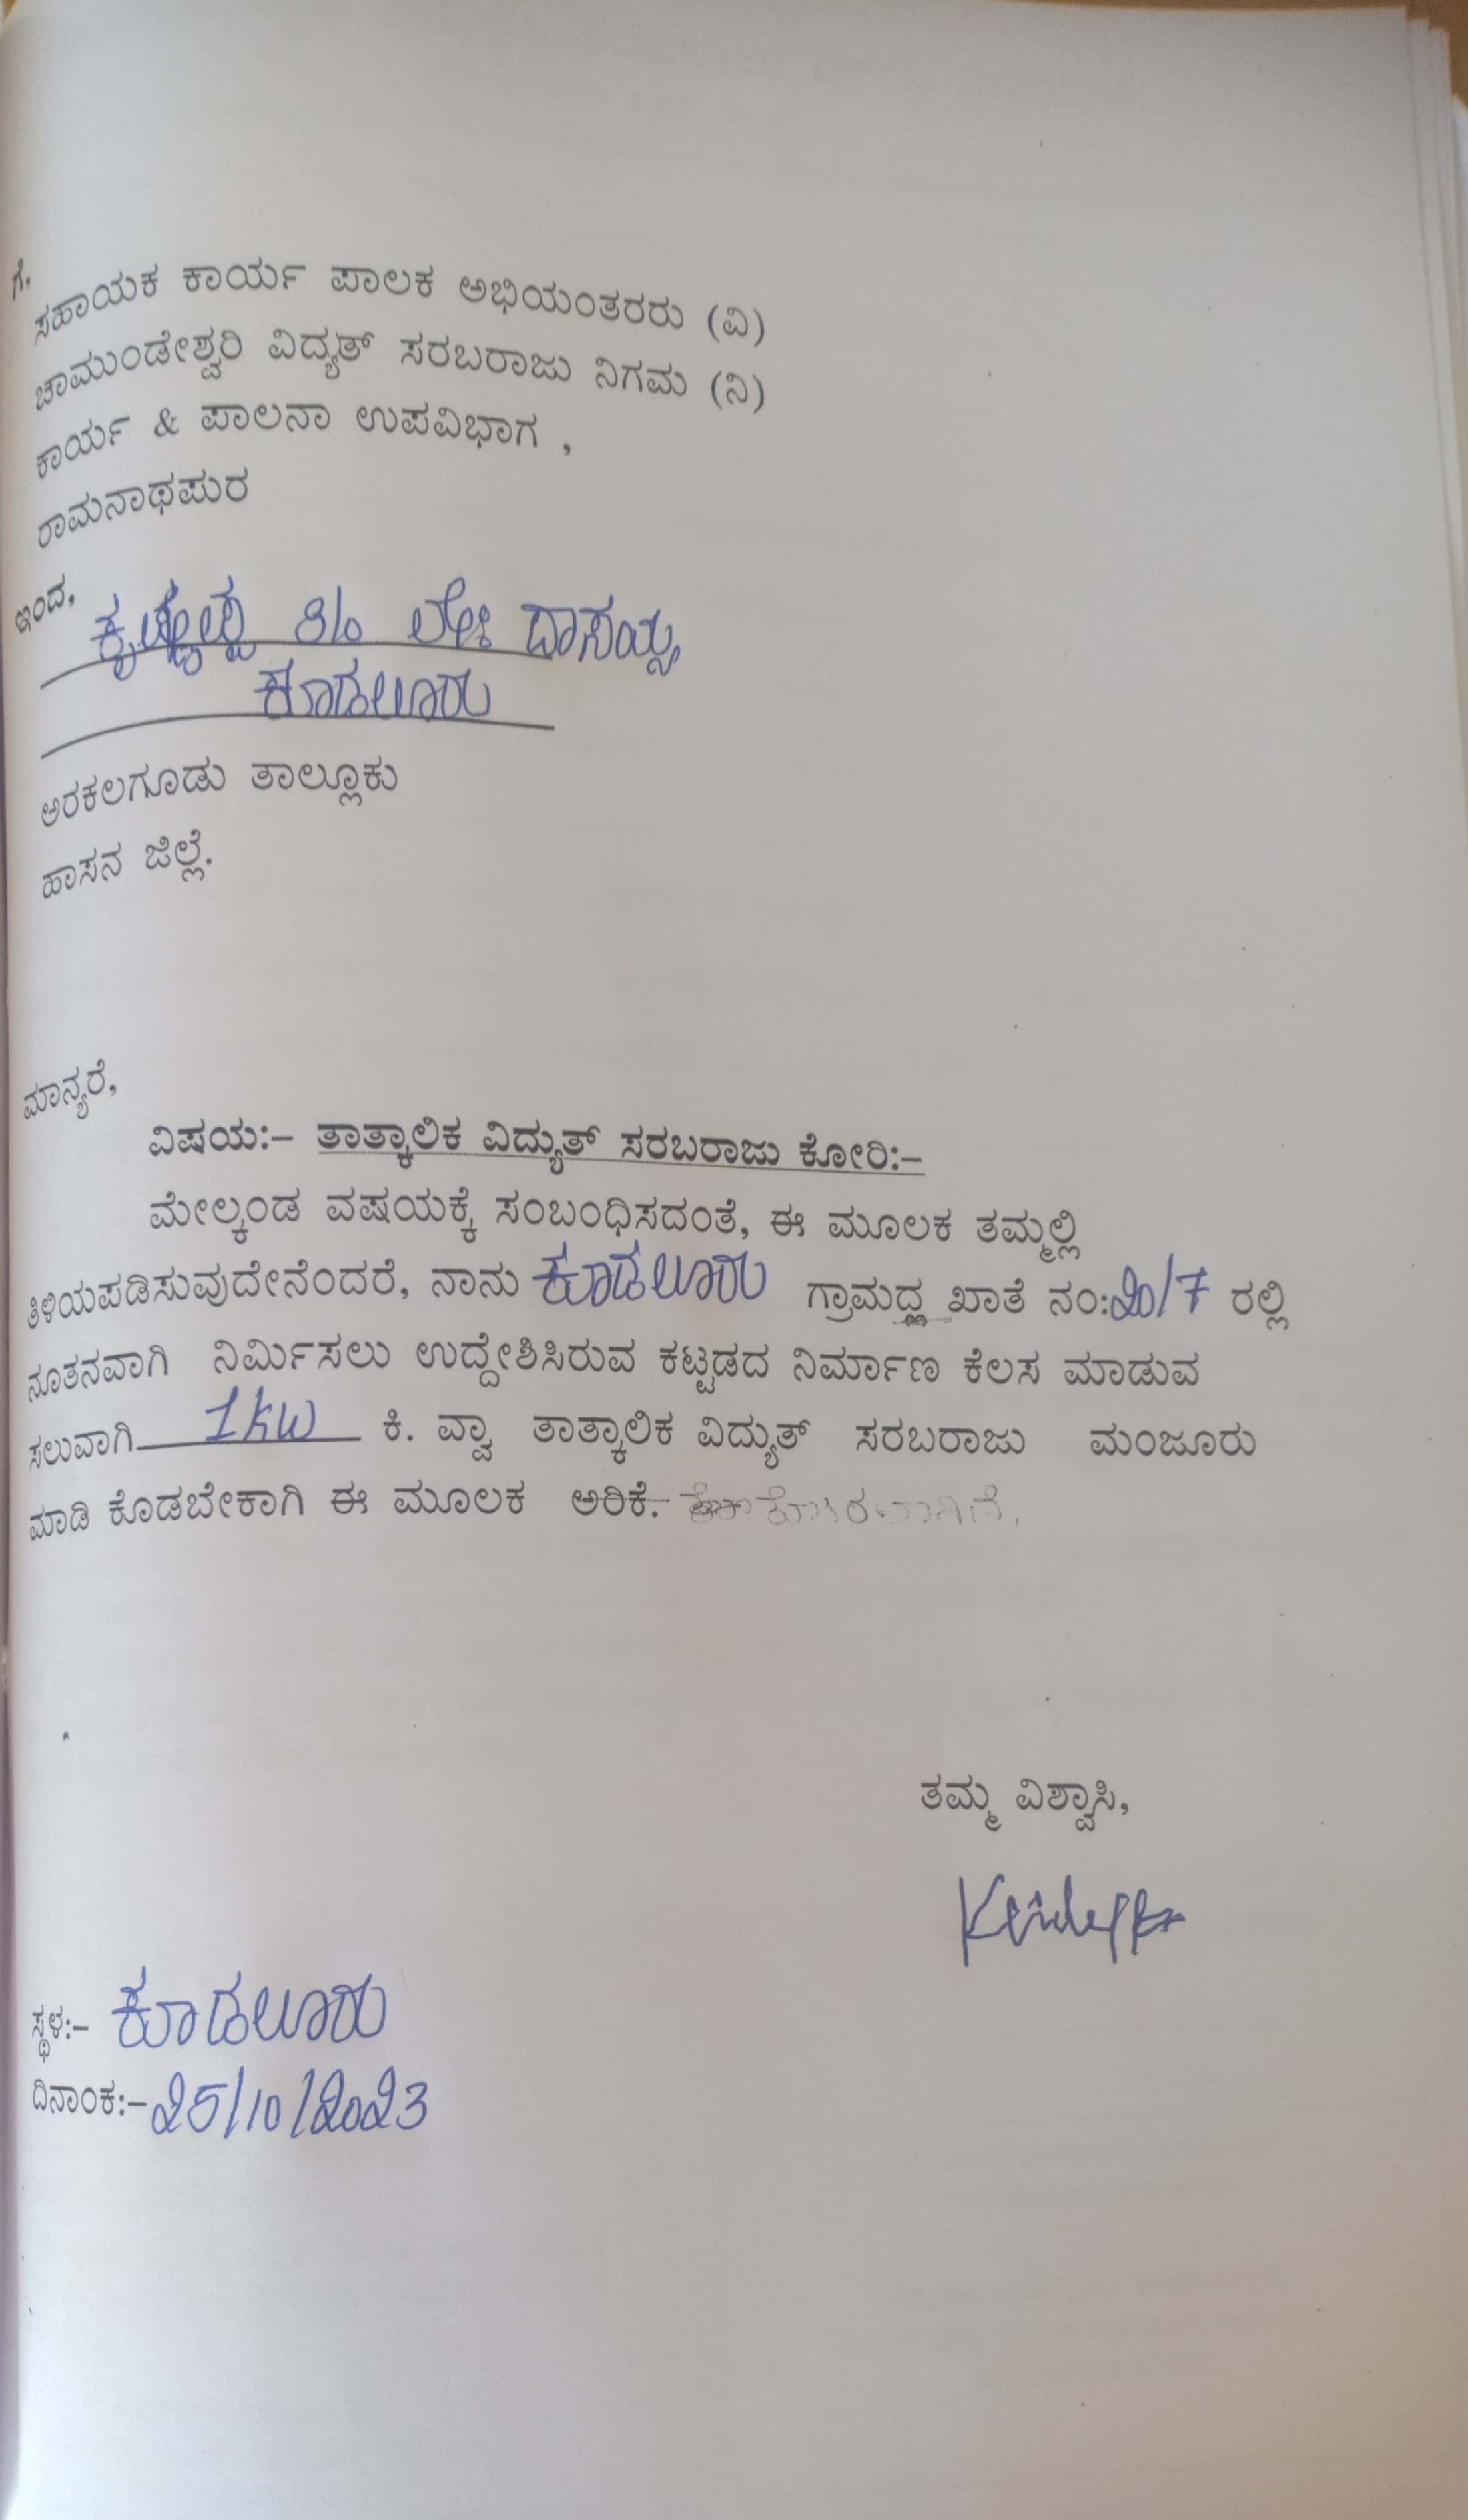 ಗೆ,
ಸಹಾಯಕ ಕಾರ್ಯ ಪಾಲಕ ಅಭಿಯಂತರರು (ವಿ)
ಚಾಮುಂಡೇಶ್ವರಿ ವಿದ್ಯತ್ ಸರಬರಾಜು ನಿಗಮ (ನಿ)
ಕಾರ್ಯ & ಪಾಲನಾ ಉಪವಿಭಾಗ ,
ರಾಮನಾಥಪುರ
ಇಂದ,
ದಾಸಯ್ಯ
ಕೂಡಲೂರು
ಅರಕಲಗೂಡು ತಾಲ್ಲೂಕು
ಹಾಸನ ಜಿಲ್ಲೆ.
ಮಾನ್ಯರೆ,
ವಿಷಯ:– ತಾತ್ಕಾಲಿಕ ವಿದ್ಯುತ್ ಸರಬರಾಜು ಕೋರಿ:–
ಮೇಲ್ಕಂಡ ವಷಯಕ್ಕೆ ಸಂಬಂಧಿಸದಂತೆ, ಈ ಮೂಲಕ ತಮ್ಮಲ್ಲಿ
ತಿಳಿಯಪಡಿಸುವುದೇನೆಂದರೆ, ನಾನು ಕೂಡಲೂರು ಖಾತೆ ನಂ:20/7 ರಲ್ಲಿ
ನೂತನವಾಗಿ ನಿರ್ಮಿಸಲು ಉದ್ದೇಶಿಸಿರುವ ಕಟ್ಟಡದ ನಿರ್ಮಾಣ ಕೆಲಸ ಮಾಡುವ
ಸಲುವಾಗಿ 1KW ಕಿ. ವ್ವಾ ತಾತ್ಕಾಲಿಕ ವಿದ್ಯುತ್ ಸರಬರಾಜು ಮಂಜೂರು
ಮಾಡಿ ಕೊಡಬೇಕಾಗಿ ಈ ಮೂಲಕ ಅರಿಕೆ.
ತಮ್ಮ ವಿಶ್ವಾಸಿ,
ಸ್ಥಳ:– ಕೂಡಲೂರು
ದಿನಾಂಕ:– 25/10/2023